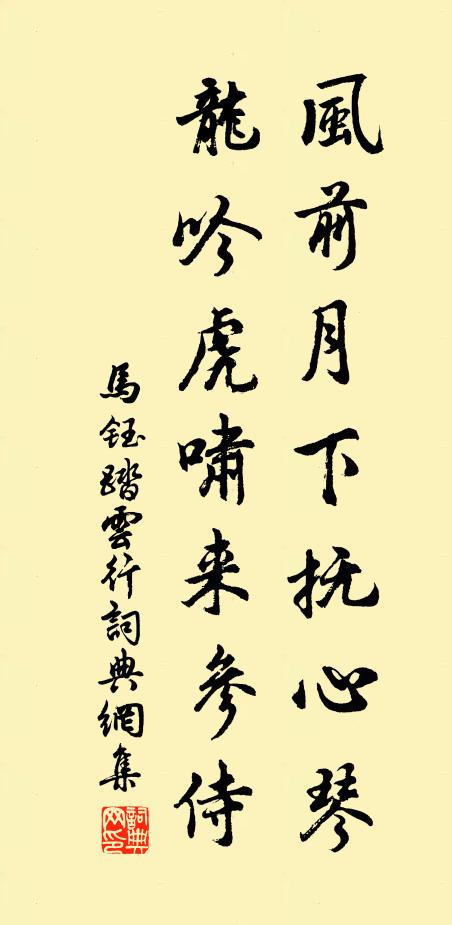 風前月下抚心琴
龍吟虎嘯来參侍
馬鈺踏雲行詞典網集
詞典网印